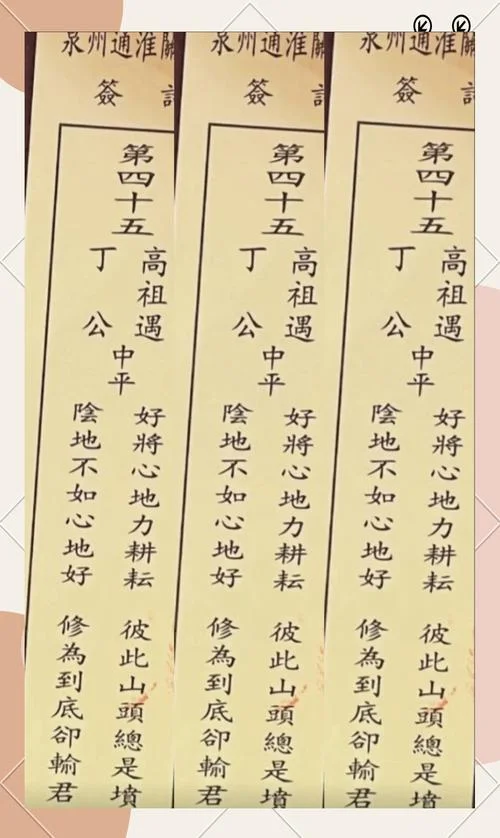 泉州通淮
簽
第四十五
高祖遇
丁公
中平
好將心地力耕耘
彼此山頭總是墳
陰地不如心地好
修為到底卻輸君
泉州通淮
簽
第四十五
高祖遇
丁公
中平
好將心地力耕耘
彼此山頭總是墳
陰地不如心地好
修為到底卻輸君
泉州通淮
簽
第四十五
高祖遇
丁公
中平
好將心地力耕耘
彼此山頭總是墳
陰地不如心地好
修為到底卻輸君